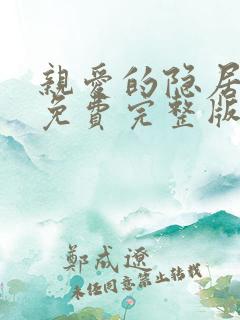 親愛的隐居
免費完整版
鄭成遼
未经同意禁止转载